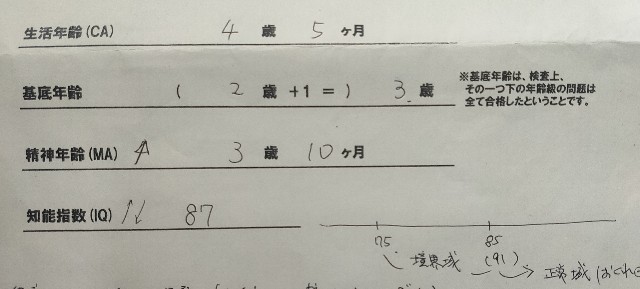 生活年齢(CA) 4 歳 5 ヶ月
基底年齢 ( 2 歳 +1 = ) 3 歳
※基底年齢は、検査上、
その一つ下の年齢級の問題は
全て合格したということです。
精神年齢(MA) 3 歳 10 ヶ月
知能指数(IQ) 87
75 85
境界域 (91) 正常域